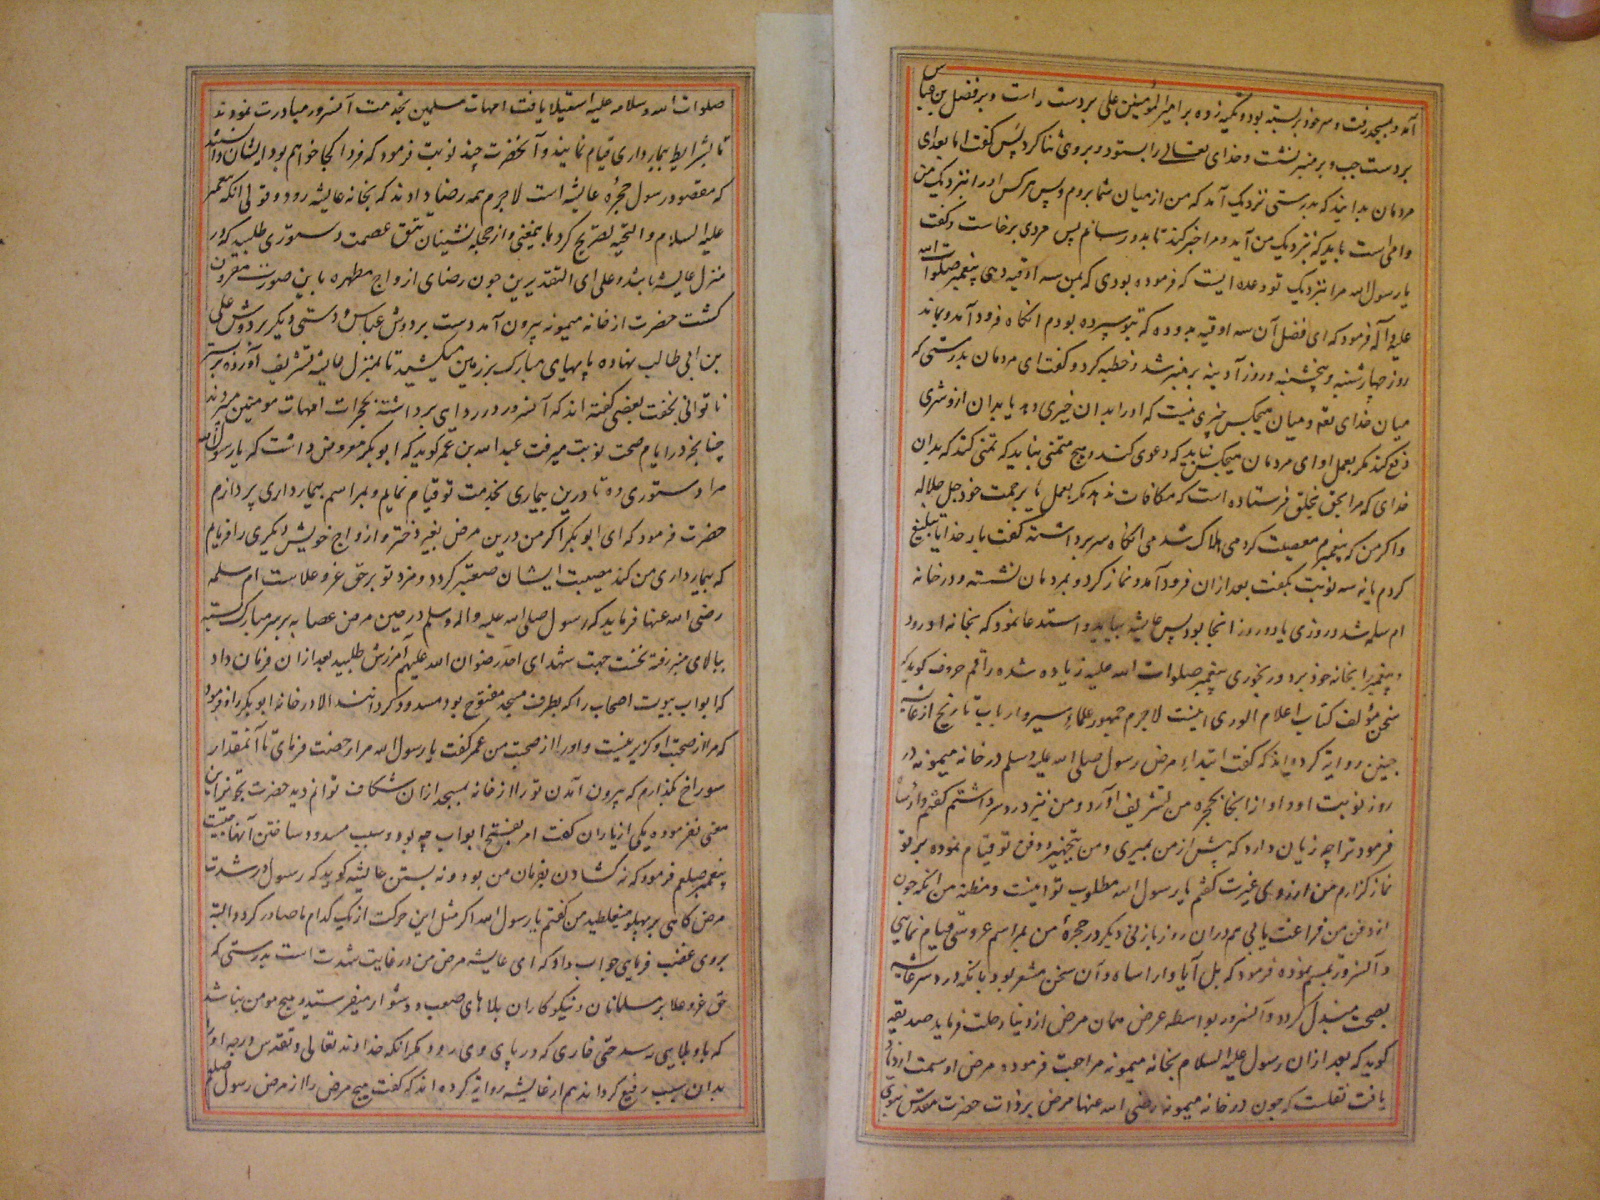 آمد و بمسجد رفت و سر خود بربسته بود و تکیه زده بر امیرالمؤمنین علی بر دست راست و بر فضل بن عباس
بر دست چپ و بر منبر نشست و خدای تعالی را بستود و بروی ثنا کرد پس گفت اما بعد ای
مردمان بدانید که بدرستی نزدیک آمد که من از میان شما بروم و پس هر کس او را نزدیک من
وامی است باید که نزدیک من آید و مرا خبر کند تا بدو رسانم پس مردی برخاست و گفت
یا رسول الله مرا نزدیک تو وعده ایست که فرموده بودی که بمن سه اوقیه دهی پیغمبر صلوات الله
علیه و آله فرمود که ای فضل آن سه اوقیه بدو ده که بتو سپرده بودم انکاه فرود آمد و بماند
روز چهارشنبه و پنجشنبه و روز آدینه بر منبر شد و خطبه کرد و گفت ای مردمان بدرستی که
میان خدای تعه و میان هیچکس چیزی نیست که او را بدان خیری دهد یا بدان ازو شری
دفع کند مکر بعمل او ای مردمان هیچکس نباید که دعوی کند و هیچ متمنی نباید که تمنی کند که بدان
خدای که مرا بحق بخلق فرستاده است که مکافات ندهد مکر بعمل یا برحمت خود جل جلاله
واکر من که پیغمبرم معصیت کردمی هلاک شدمی انکاه سر برداشته گفت بار خدایا تبلیغ
کردم یا نه سه نوبت بگفت بعد ازان فرود آمد و نماز کرد و بمردمان نشسته و در خانه
ام سلمه شد و روزی یا دو روز انجا بود پس عایشه بیامد و استدعا نمود که بخانه او رود
و پیغمبر را بخانه خود برد و رنجوری پیغمبر صلوات الله علیه زیاده شد راقم حروف کوید که
سخن مؤلف کتاب اعلام الوری اینست لاجرم جمهور علماء سیر و ارباب تاریخ از عایشه
چنین روایة کرده اند که گفت ابتداء مرض رسول صلی الله علیه وسلم در خانه میمونه در
روز نوبت او و او از انجا بحجره من تشریف آورد و من نیز درد سر داشتم گفتم وا رأساه
فرمود ترا چه زیان دارد که پیش از من بمیری و من بتجهیز و دفن تو قیام نموده بر تو
نماز کزارم من از روی غیرت گفتم یا رسول الله مطلوب تو اینست و مظنه من انکه چون
از دفن من فراغت یابی هم دران روز با زنی دیکر در حجرهٔ من بمراسم عروسی قیام نمایی
و آنسرور تبسم نموده فرمود که بل انا وا رأساه و آن سخن مشعر بود بانکه درد سر عایشه
بصحت مبدل کردد و آنسرور بواسطه عرض همان مرض از دنیا رحلت فرماید صدیقه
کوید که بعد ازان رسول علیه السلام بخانه میمونه مراجعت فرمود و مرض او سمت ازدیاد
یافت نقلست که چون در خانه میمونه رضی الله عنها مرض بر ذات حضرت مقدس نبوی
صلوات الله و سلامه علیه استیلا یافت امهات مسلمین بخدمت آنسرور مبادرت نمودند
تا بشرایط بیمارداری قیام نمایند و آنحضرت چند نوبت فرمود که فردا کجا خواهم بود ایشان دانستند
که مقصود رسول حجرهٔ عایشه است لاجرم همه رضا دادند که بخانه عایشه رود و قولی انکه پیغمبر
علیه السلام والتحیه تصریح کرد باینمعنی و از حجله نشینان تتق عصمت دستوری طلبید که در
منزل عایشه باشد و علی ای التقدیرین چون رضای ازواج مطهره باین صورت مقرون
کشت حضرت از خانه میمونه بیرون آمد دست بر دوش عباس و دستی دیکر بر دوش علی
بن ابی طالب نهاده پایهای مبارک بر زمین میکشید تا بمنزل عایشه تشریف آورده بر بستر
ناتوانی بخفت بعضی گفته اند که آنسرور در ردای برداشته بحجرات امهات مومنین میبردند
چنانچه در ایام صحت نوبت میرفت عبد الله بن عمر کوید که ابوبکر معروض داشت که یا رسول الله
مرا دستوری ده تا درین بیماری بخدمت تو قیام نمایم و بمراسم بیمارداری پردازم
حضرت فرمود که ای ابوبکر اکر من درین مرض بغیر دختر و ازواج خویش دیکری را فرمایم
که بیمارداری من کند مصیبت ایشان صعبتر کردد و مزد تو بر حق عز و علاست ام سلمه
رضی الله عنها فرماید که رسول صلی الله علیه واله وسلم در حین مرض عصابه بر سر مبارک بسته
ببالای منبر رفته نخست جهت شهدای احد رضوان الله علیهم آمرزش طلبید بعد ازان فرمان داد
که ابواب بیوت اصحاب را که بطرف مسجد مفتوح بود مسدود کردانند الا در خانه ابوبکر را و فرمود
که مرا از صحبت او کزیر نیست و او را از صحبت من عمر گفت یا رسول الله مرا رخصت فرمای تا آنمقدار
سوراخ بکذارم که بیرون آمدن تو را از خانه بمسجد ازان شکاف توانم دید حضرت تجویز این
معنی نفرموده یکی از یاران گفت امر بفتح ابواب چه بود و سبب مسدود ساختن آنها چیست
پیغمبر صلعم فرمود که نه کشادن بفرمان من بود و نه بستن عایشه کوید که رسول در شدت
مرض کاهی بر پهلو میغلطید من گفتم یا رسول الله اکر مثل این حرکت از یک کدام ما صادر کردد البته
بروی غضب فرمایی جواب داد که ای عایشه مرض من در غایت شدت است بدرستی که
حق عز و علا بر مسلمانان و نیکو کاران بلاهای صعب و دشوار میفرستد و هیچ مومن نباشد
که باو بلایی رسد حتی خاری که در پای وی رود مکر انکه خداوند تعالی و تقدس درجه او را
بدان سبب رفیع کرداند هم از عایشه روایة کرده اند که گفت هیچ مرض را از مرض رسول صلعم